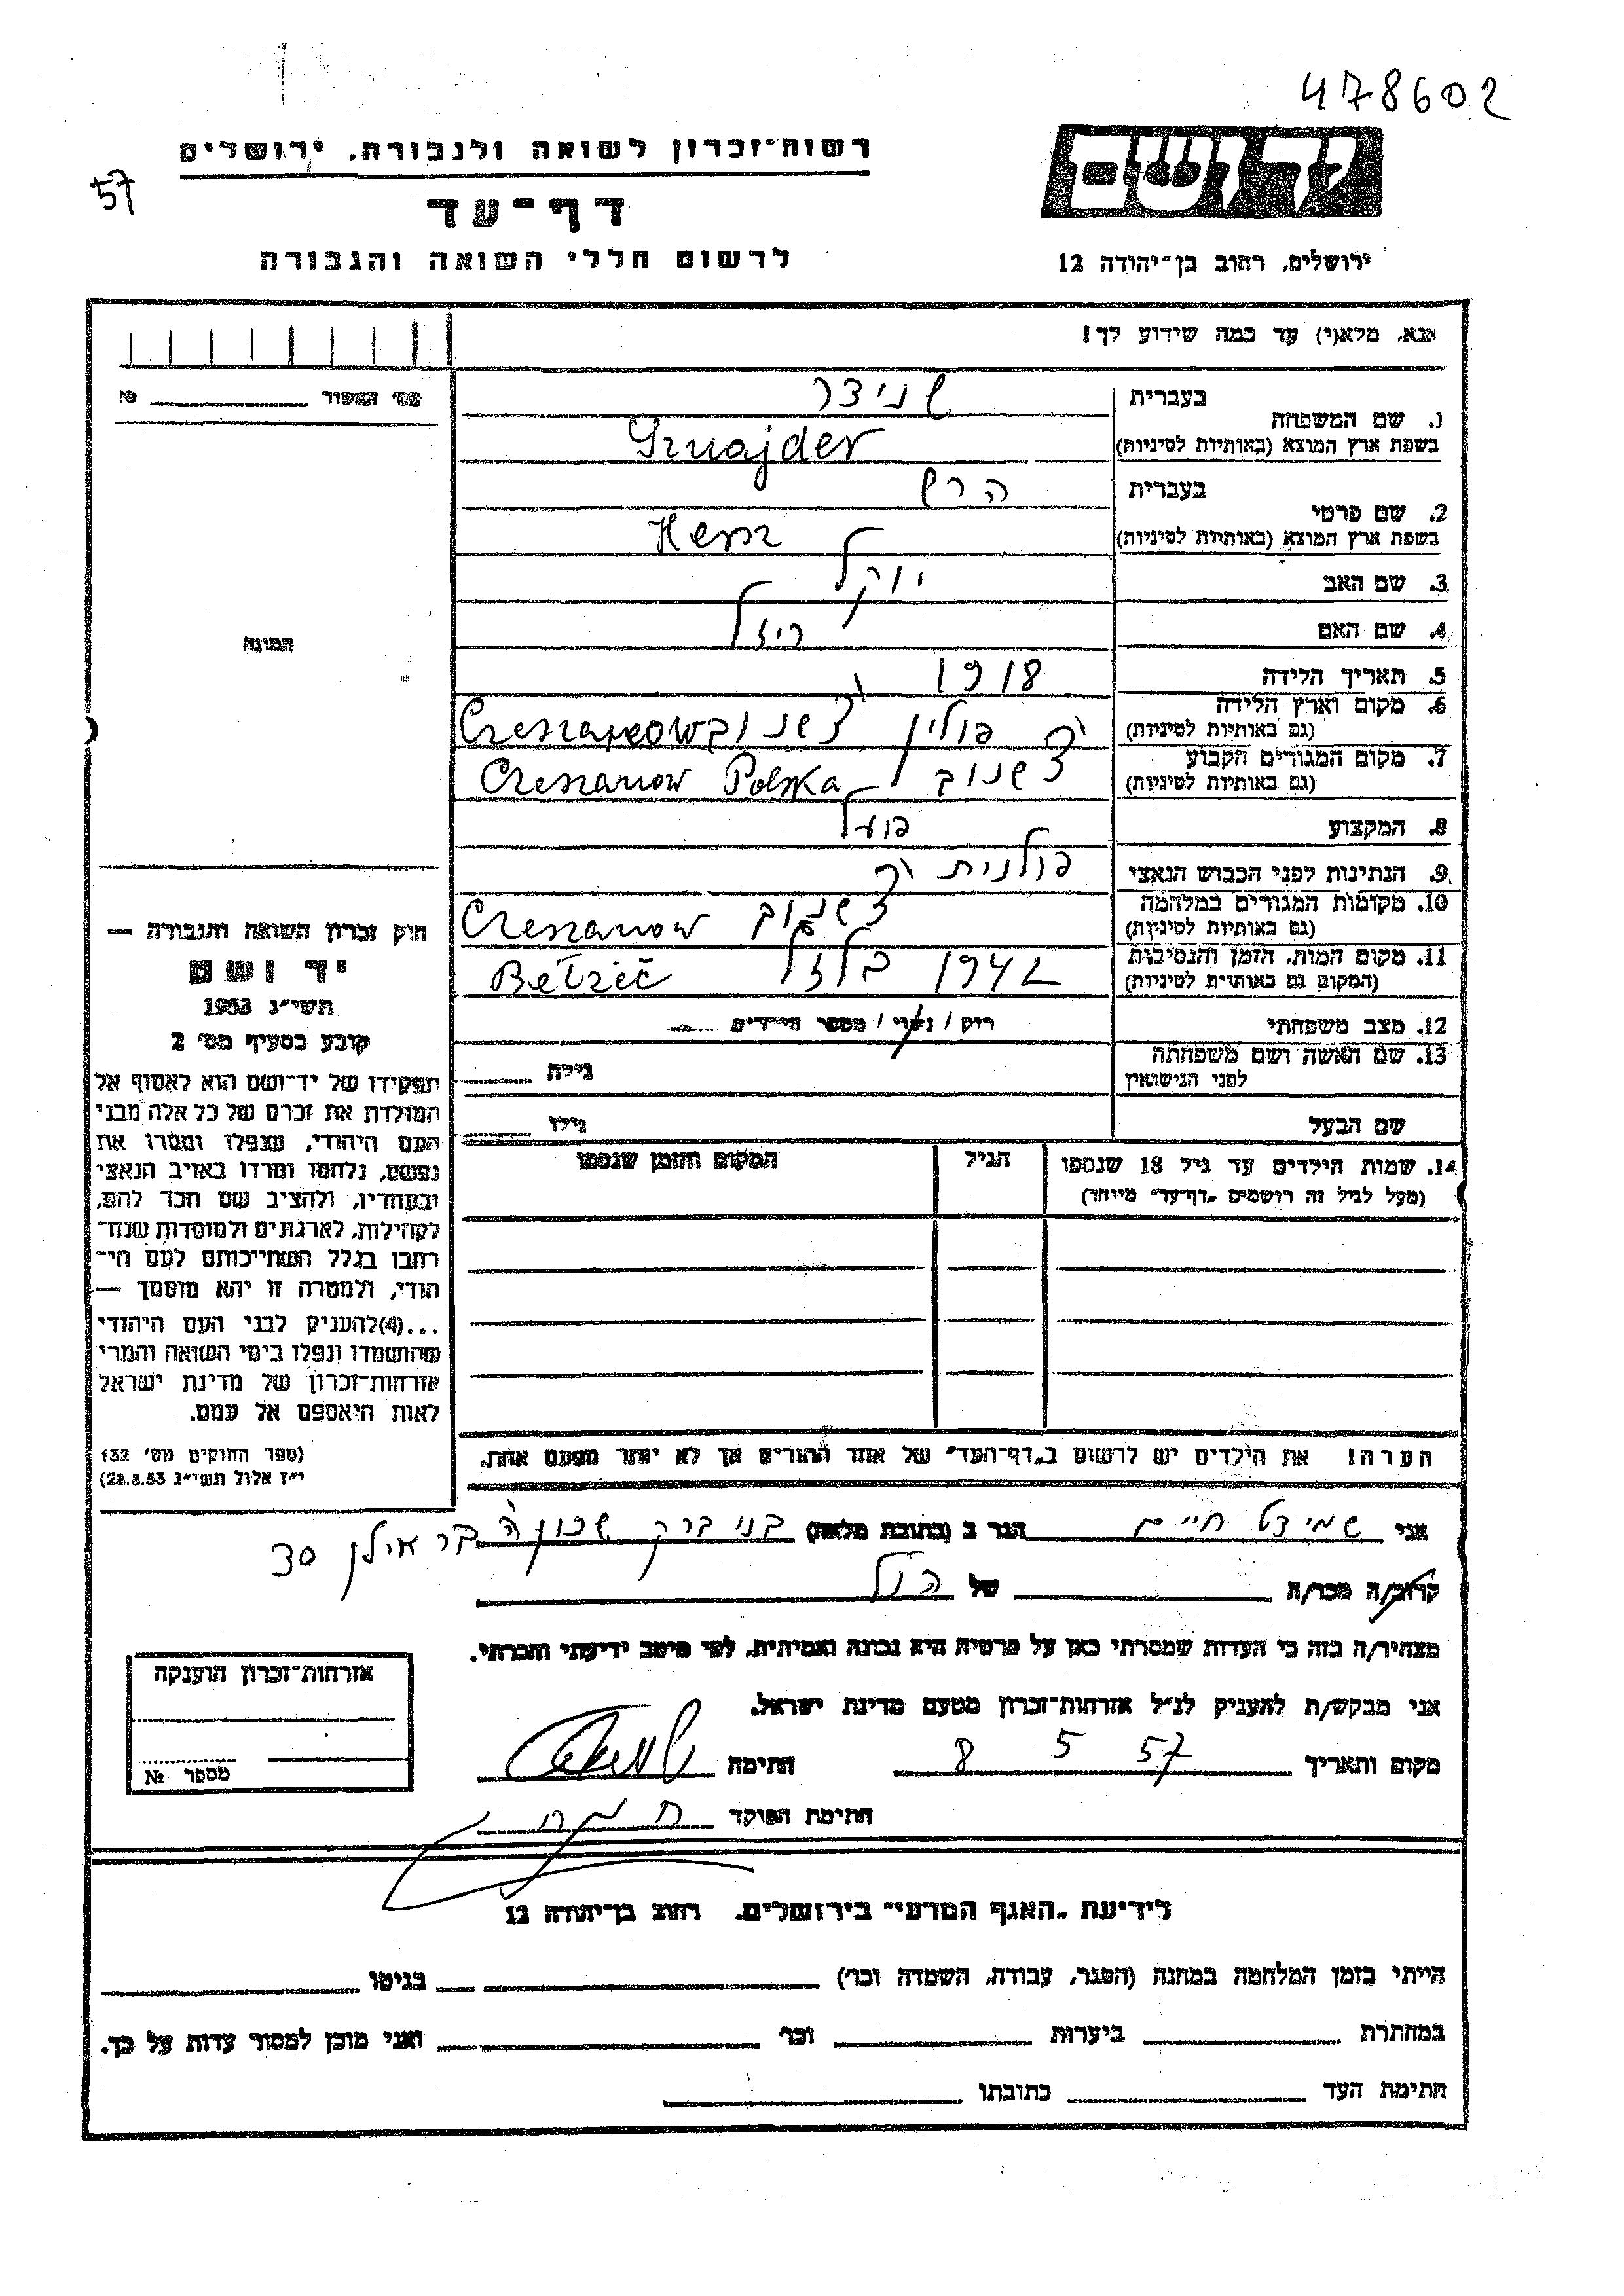 478602
57
רשות־זכרון לשואה ולגבורה, ירושלים
דף־עד
לרשום חללי השואה והגבורה
יד ושם
ירושלים, רחוב בן־יהודה 12
נא, מלא(י) עד כמה שידוע לך!
מס' האשור № 
בעברית שניצר
1. שם המשפחה
בשפת ארץ המוצא (באותיות לטיניות) Sznajder
בעברית הרש
2. שם פרטי
בשפת ארץ המוצא (באותיות לטיניות) Hersz
3. שם האב יוקל
4. שם האם רייזל
5. תאריך הלידה 1918
6. מקום וארץ הלידה
(גם באותיות לטיניות) פולין צ'שנוב
7. מקום המגורים הקבוע
(גם באותיות לטיניות) צ'שנוב Czeszanow Polska
8. המקצוע פועל
9. הנתינות לפני הכבוש הנאצי פולנית
10. מקומות המגורים במלחמה
(גם באותיות לטיניות) צ'שנוב Czeszanow
11. מקום המות, הזמן והנסיבות
(המקום גם באותיות לטיניות) 1942 בלזל Bełzéc
12. מצב משפחתי רוק / נשוי / מספר הילדים
13. שם האשה ושם משפחתה
לפני הנישואין גילה
שם הבעל גילו
14. שמות הילדים עד גיל 18 שנספו הגיל המקום והזמן שנספו
(מעל לגיל זה רושמים "דף־עד" מיוחד)
הערה! את הילדים יש לרשום ב"דף־העד" של אחד ההורים אך לא יותר מפעם אחת.
התמונה
חוק זכרון השואה והגבורה —
יד ושם
תשי"ג 1953
קובע בסעיף מס' 2
תפקידו של יד־ושם הוא לאסוף אל
המולדת את זכרם של כל אלה מבני
העם היהודי, שנפלו ומסרו את
נפשם, נלחמו ומרדו באויב הנאצי
ובעוזריו, ולהציב שם וזכר להם,
לקהילות, לארגונים ולמוסדות שנח־
רבו בגלל השתייכותם לעם הי־
הודי, ולמטרה זו יהא מוסמך —
...(4)להעניק לבני העם היהודי
שהושמדו ונפלו בימי השואה והמרי
אזרחות־זכרון של מדינת ישראל
לאות היאספם אל עמם.
(ספר החוקים מס' 132
י"ז אלול תשי"ג 28.8.53)
אני שמידט חיים הגר ב (כתובת מלאה) בני ברק שכונה בר אילן 30
קרוב/ה מכר/ה של הנ"ל
מצהיר/ה בזה כי העדות שמסרתי כאן על פרטיה היא נכונה ואמיתית, לפי מיטב ידיעתי והכרתי.
אני מבקש/ת להעניק לנ"ל אזרחות־זכרון מטעם מדינת ישראל.
מקום ותאריך 8 5 57 חתימה
חתימת הפוקד
אזרחות־זכרון הוענקה
מספר №
לידיעת "האגף המדעי" בירושלים, רחוב בן־יהודה 12
הייתי בזמן המלחמה במחנה (הסגר, עבודה, השמדה וכו') בגיטו
במחתרת ביערות וכו' ואני מוכן למסור עדות על כך.
חתימת העד כתובתו